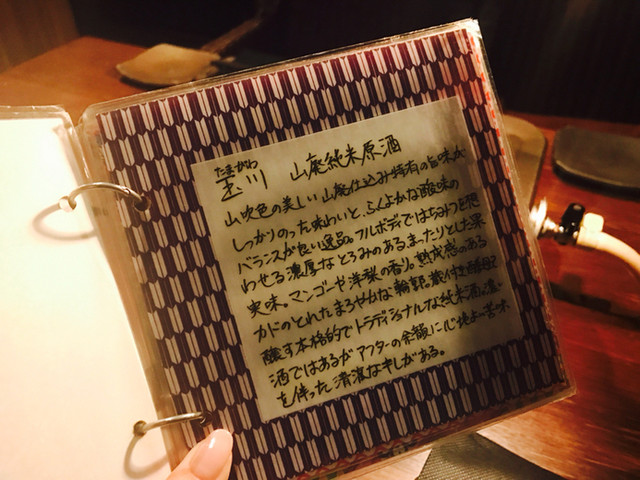 たまがわ
玉川 山廃純米原酒
山吹色の美しい山廃仕込み特有の旨味が
しっかりのった味わいと、ふくよかな酸味の
バランスが良い逸品。フルボディではちみつを想
わせる濃厚なとろみのあるまったりとした果
実味。マンゴーや洋梨の香り。熟成感のある
カドのとれたまろやかな輪郭。蔵付き酵母で
醸す本格的でトラディショナルな純米酒。濃い
酒ではあるがアフターの余韻に心地よい苦味
を伴った清涼なキレがある。